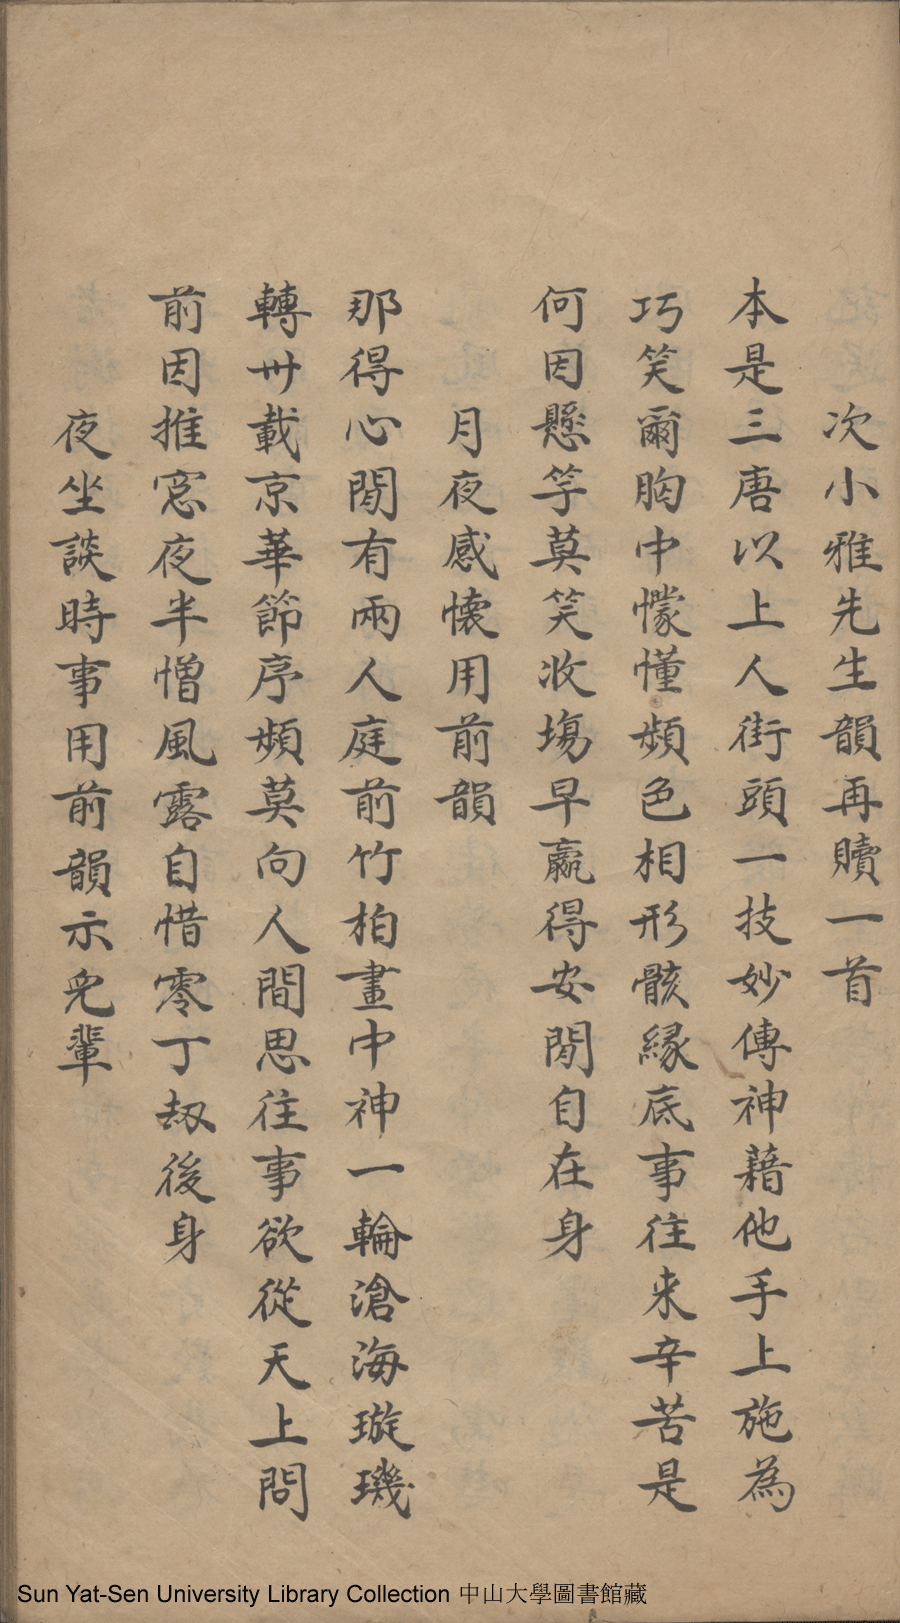 次小雅先生韻再贖一首
本是三唐以上人街頭一技妙傳神藉他手上施為
巧笑爾胸中懞懂頻色相形骸緣底事往来辛苦是
何因懸竽莫笑收塲早贏得安閒自在身
月夜感懷用前韻
那得心閒有兩人庭前竹柏畫中神一輪滄海璇璣
轉卅載京華節序頻莫向人間思往事欲從天上問
前因推窓夜半憎風露自惜零丁刼後身
夜坐談時事用前韻示兒輩
Sun Yat-Sen University Library Collection 中山大學圖書館藏